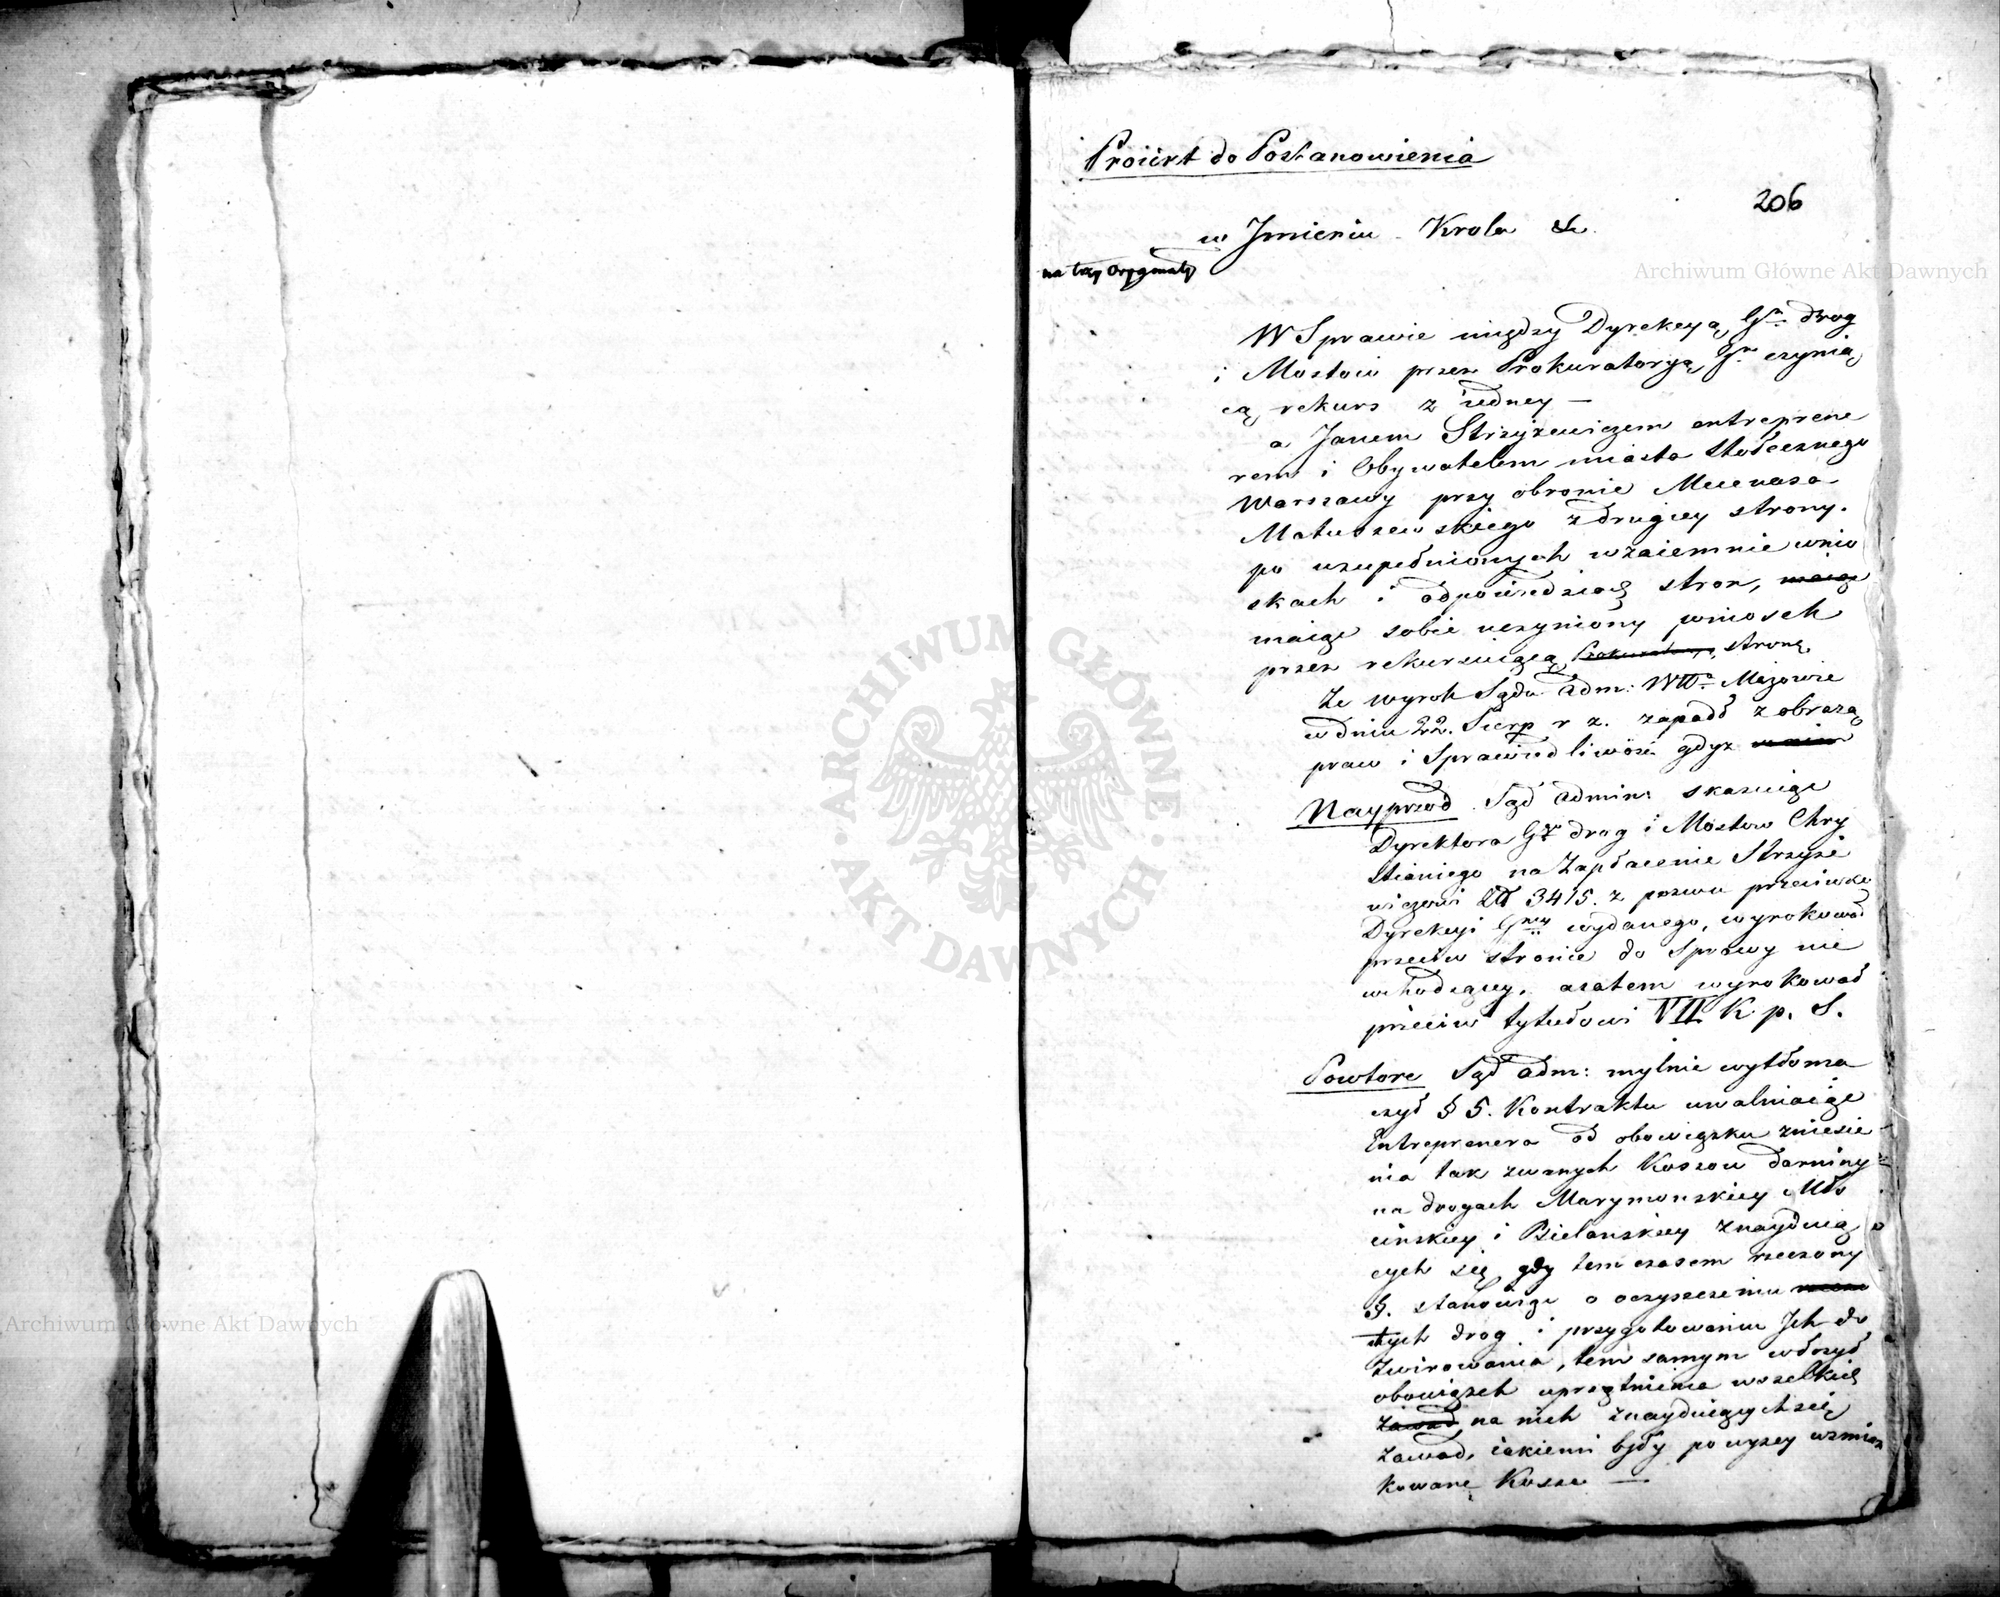 Proiekt do Postanowienia
206
w Jmieniu Krola &c.
na trzy oryginały
W Sprawie między Dyrekcyą Gn. drog
i Mostow przez Prokuratoryą Jn. czynią
cą rekurs z iedney —
a Janem Strzyżewiczem entreprene
rem i Obywatelem miasta stołecznego
Warszawy przy obronie Mecenasa
Matuszewskiego z drugiey strony.
po uzupełnionych wzaiemnie wnio
skach i odpowiedziach stron, maiąc
maiąc sobie uczyniony wniosek
przez rekursuiącą Prokuratoryą stronę
Że wyrok Sądu adm: Wwa Mazowie
w dniu 22. Sierp r z. zapadł z obrazą
praw i Sprawiedliwości gdyż
Nayprzod Sąd admin: skazuiąc
Dyrektora Gn drog i Mostow Chry
stianiego na Zapłacenie Strzyże
wiczowi Zł 3415. z pozwu przeciwko
Dyrekcyi Gney wydanego, wyrokował
przeciw stronie do Sprawy nie
wchodzącey, azatem wyrokował
przeciw tytułowi VII K p. S.
Powtore Sąd adm: mylnie wytłoma
czył § 5. Kontraktu uwalniaiąc
Entreprenera od obowiązku zniesie
nia tak zwanych Koszow darniny
na drogach Marymonskiey Mło
cińskiey i Bielanskiey znayduią
cych się, gdy tem czasem rzeczony
§. stanowiąc o oczyszczeniu
tych drog i przygotowaniu Jch do
Żwirowania, tem samym włożył
obowiązek uprzątnienia wszelkich
Zawad na nich znayduiących się
zawad, iakiemi były powyżey wzmian
kowane Kosze —
Archiwum Główne Akt Dawnych
Archiwum Główne Akt Dawnych
ARCHIWUM GŁÓWNE · AKT DAWNYCH ·